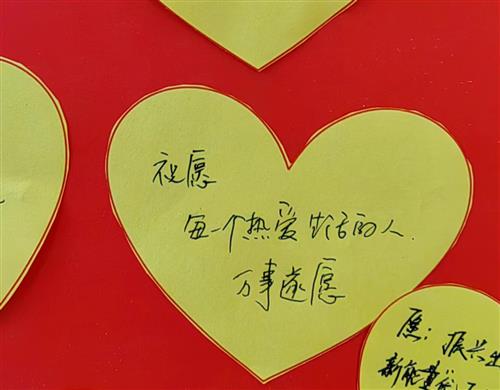 祝愿
每一个热爱生活的人
万事遂愿
愿：振兴
新能